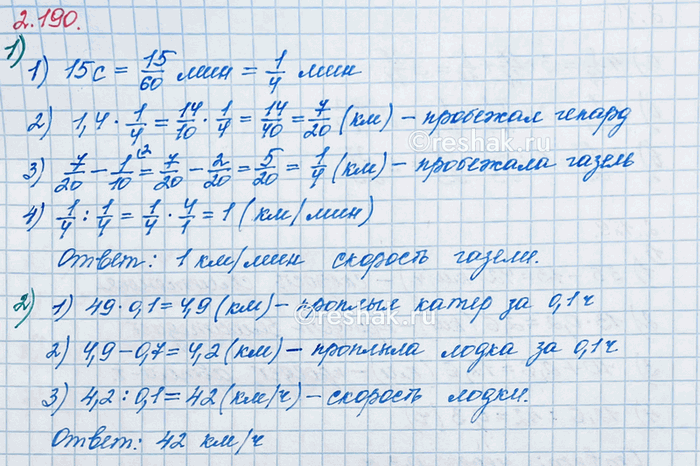 2.190.
1)
1) 15с = 15/60 мин = 1/4 мин
2) 1,4 · 1/4 = 14/10 · 1/4 = 14/40 = 7/20 (км) – пробежал гепард
3) 7/20 – 1/10 (2 = 7/20 – 2/20 = 5/20 = 1/4 (км) – пробежала газель
4) 1/4 : 1/4 = 1/4 · 4/1 = 1 (км/мин)
Ответ: 1 км/мин скорость газели.
2) 1) 49 · 0,1 = 4,9 (км) – проплыл катер за 0,1 ч
©reshak.ru
2) 4,9 – 0,7 = 4,2 (км) – проплыла лодка за 0,1 ч
3) 4,2 : 0,1 = 42 (км/ч) – скорость лодки.
Ответ: 42 км/ч